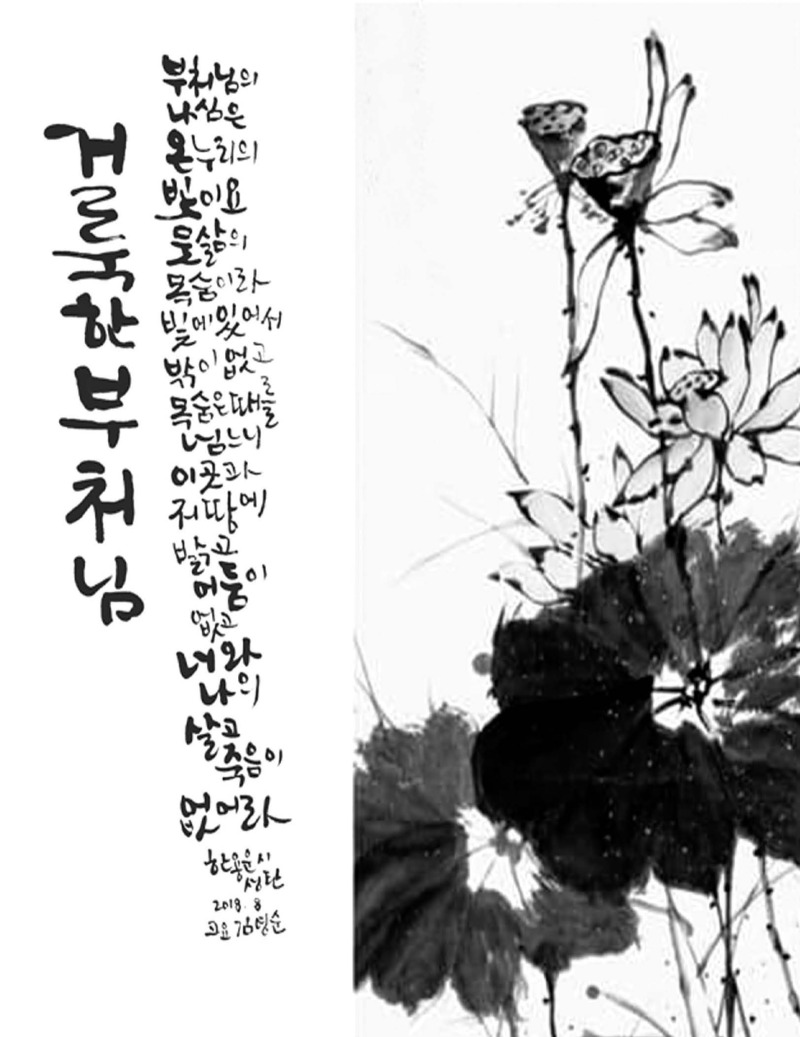 거룩한부처님
부처님의
나심은
온누리의
빛이요
뭇삶의
목숨이라
빛에있어서
밖이없고
목숨은때를
넘느니
이곳과
저땅에
밝고
어둠이
없고
너와
나의
살고
죽음이
없어라
한용운시
성탄
2018. 8
고요